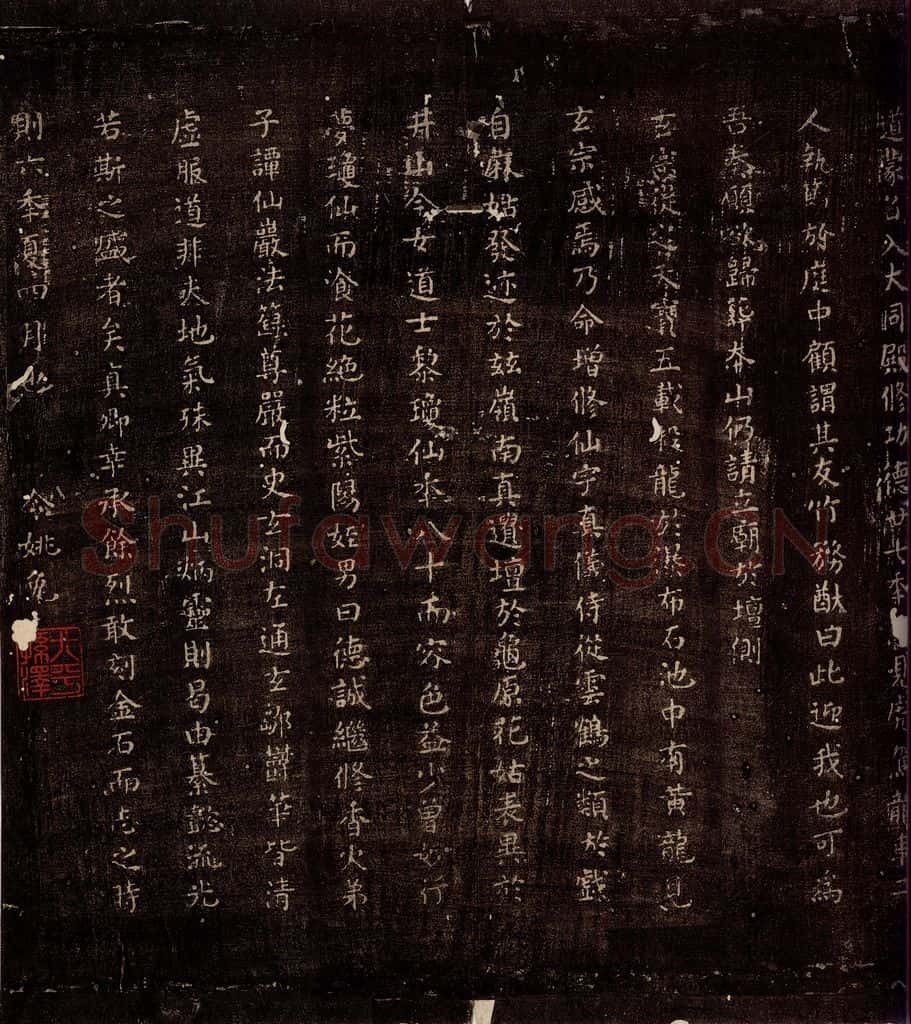 道蒙召入大同殿修功德廿七秊見虎駕龍車二
人執節於庭中顧謂其友竹務猷曰此迎我也可為
吾奏願欲歸葬本山仍請立廟於壇側
玄宗從之天寶五載投龍於瀑布石池中有黃龍見
玄宗感焉乃命增修仙宇真儀侍從雲鶴之類於戲
自麻姑發迹於茲嶺南真遺壇於龜原花姑表異於
井山今女道士黎瓊仙秊八十而容色益少曾妙行
夢瓊仙而飡花絕粒紫陽姪男曰德誠繼修香火弟
子譚仙巖法籙尊嚴而史玄洞左通玄鄒鬱華皆清
虛服道非夫地氣殊異江山炳靈則曷由纂懿流光
若斯之盛者矣真卿幸承餘烈敢刻金石而志之時
則六秊夏四月也
Shufawang.CN